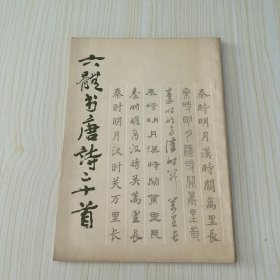 秦時明月漢時關萬里長
秦時明月漢時關萬里長
秦時明月漢時關萬里長
秦時明月漢時關萬里長
秦時明月漢時关萬里長
秦时明月汉时关万里长
六體书唐詩二十首